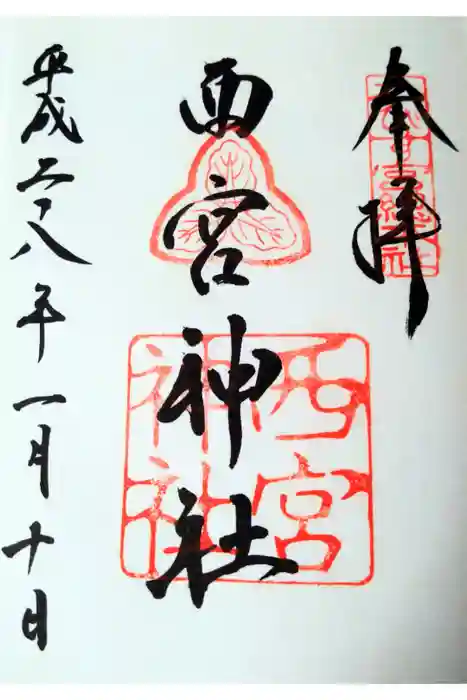 奉拝
西宮神社
西宮神社
平成二八年一月十日